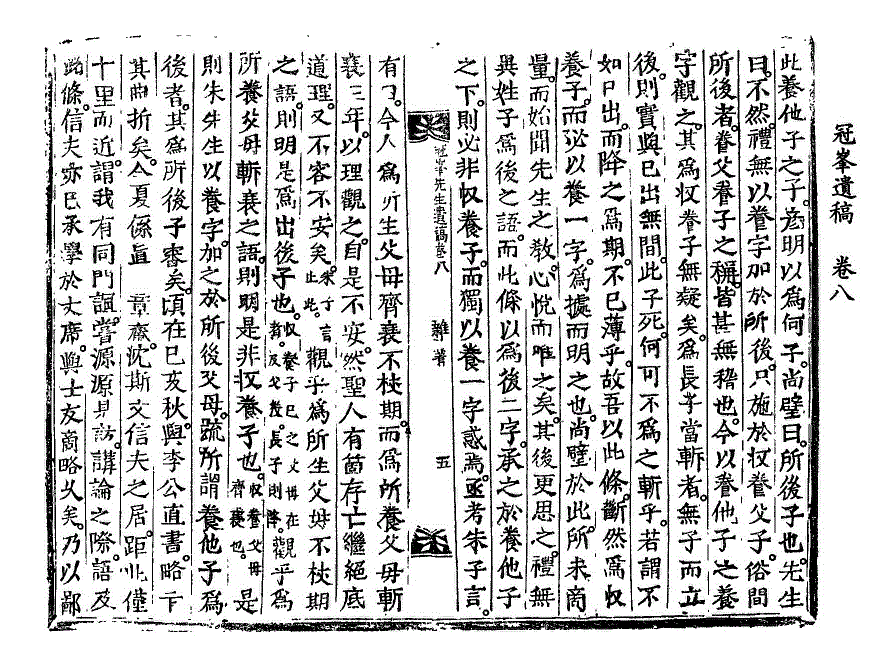 冠峯遺稿　卷八
此養他子之子彦明以爲何子尚璧曰所後子也先生
曰不然禮無以養字加於所後只施於收養父子俗間
所後者養父養子之稱皆甚無稽也今以養他子之養
字觀之其爲收養子無疑矣爲長子當斬者無子而立
後則實與已出無間此子死何可不爲之斬乎若謂不
如已出而降之爲期不已薄乎故吾以此條斷然爲收
養子而必以養一字爲據而明之也尚璧於此所未商
量而始聞先生之敎心悅而唯之矣其後更思之禮無
異姓子爲後之語而此條以爲後二字承之於養他子
之下則必非收養子而獨以養一字惑焉亟考朱子言
冠峯先生遺稿卷八　雜著　五
有曰今人爲所生父母齊衰不杖期而爲所養父母斬
衰三年以理觀之自是不安然聖人有箇存亡繼絕底
道理又不容不安矣朱子言止此觀乎爲所生父母不杖期
之語則明是爲出後子也收養子己之父母在者及父歿長子則降觀乎爲
所養父母斬衰之語則明是非收養子也收養父母齊衰也是
則朱先生以養字加之於所後父母䟽所謂養他子爲
後者其爲所後子審矣頃在己亥秋與李公直書略卞
其曲折矣今夏係直章齋沈斯文信夫之居距此僅
十里而近謂我有同門諷嘗源源見訪講論之際語及
此條信夫亦已承學於丈席與士友商略久矣乃以鄙